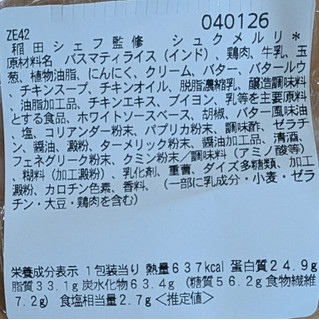 ZE42
040126
稲田シェフ監修 シュクメルリ*
原材料名 バスマティライス(インド)、鶏肉、牛乳、玉
葱、植物油脂、にんにく、クリーム、バター、バタールウ
、チキンスープ、チキンオイル、脱脂濃縮乳、醸造調味料
、油脂加工品、チキンエキス、ブイヨン、乳等を主要原料
とする食品、ホワイトソースベース、胡椒、バター風味油
、塩、コリアンダー粉末、パプリカ粉末、調味酢、ゼラチ
ン、醤油、澱粉、ターメリック粉末、醤油加工品、清酒、
フェネグリーク粉末、クミン粉末/調味料(アミノ酸等)
、糊料(加工澱粉)、乳化剤、重曹、ダイズ多糖類、加工
澱粉、カロチン色素、香料、(一部に乳成分・小麦・ゼラ
チン・大豆・鶏肉を含む)
栄養成分表示 1包装当り 熱量637kcal 蛋白質24.9g
脂質33.1g 炭水化物63.4g (糖質56.2g 食物繊維
7.2g) 食塩相当量2.7g <推定値>